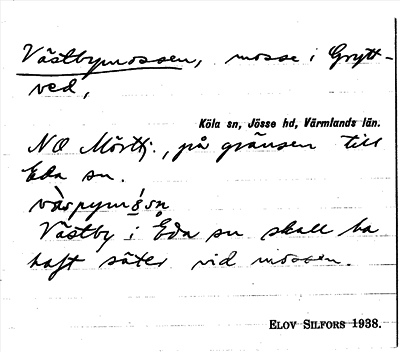 Västbymossen, mosse i Grytt-
ved,
Köla sn, Jösse hd, Värmlands län.
NO Mörttj., på gränsen till
Eda sn.
Västby i Eda sn skall ha
haft säter vid mossen.
ELOV SILFORS 1938.